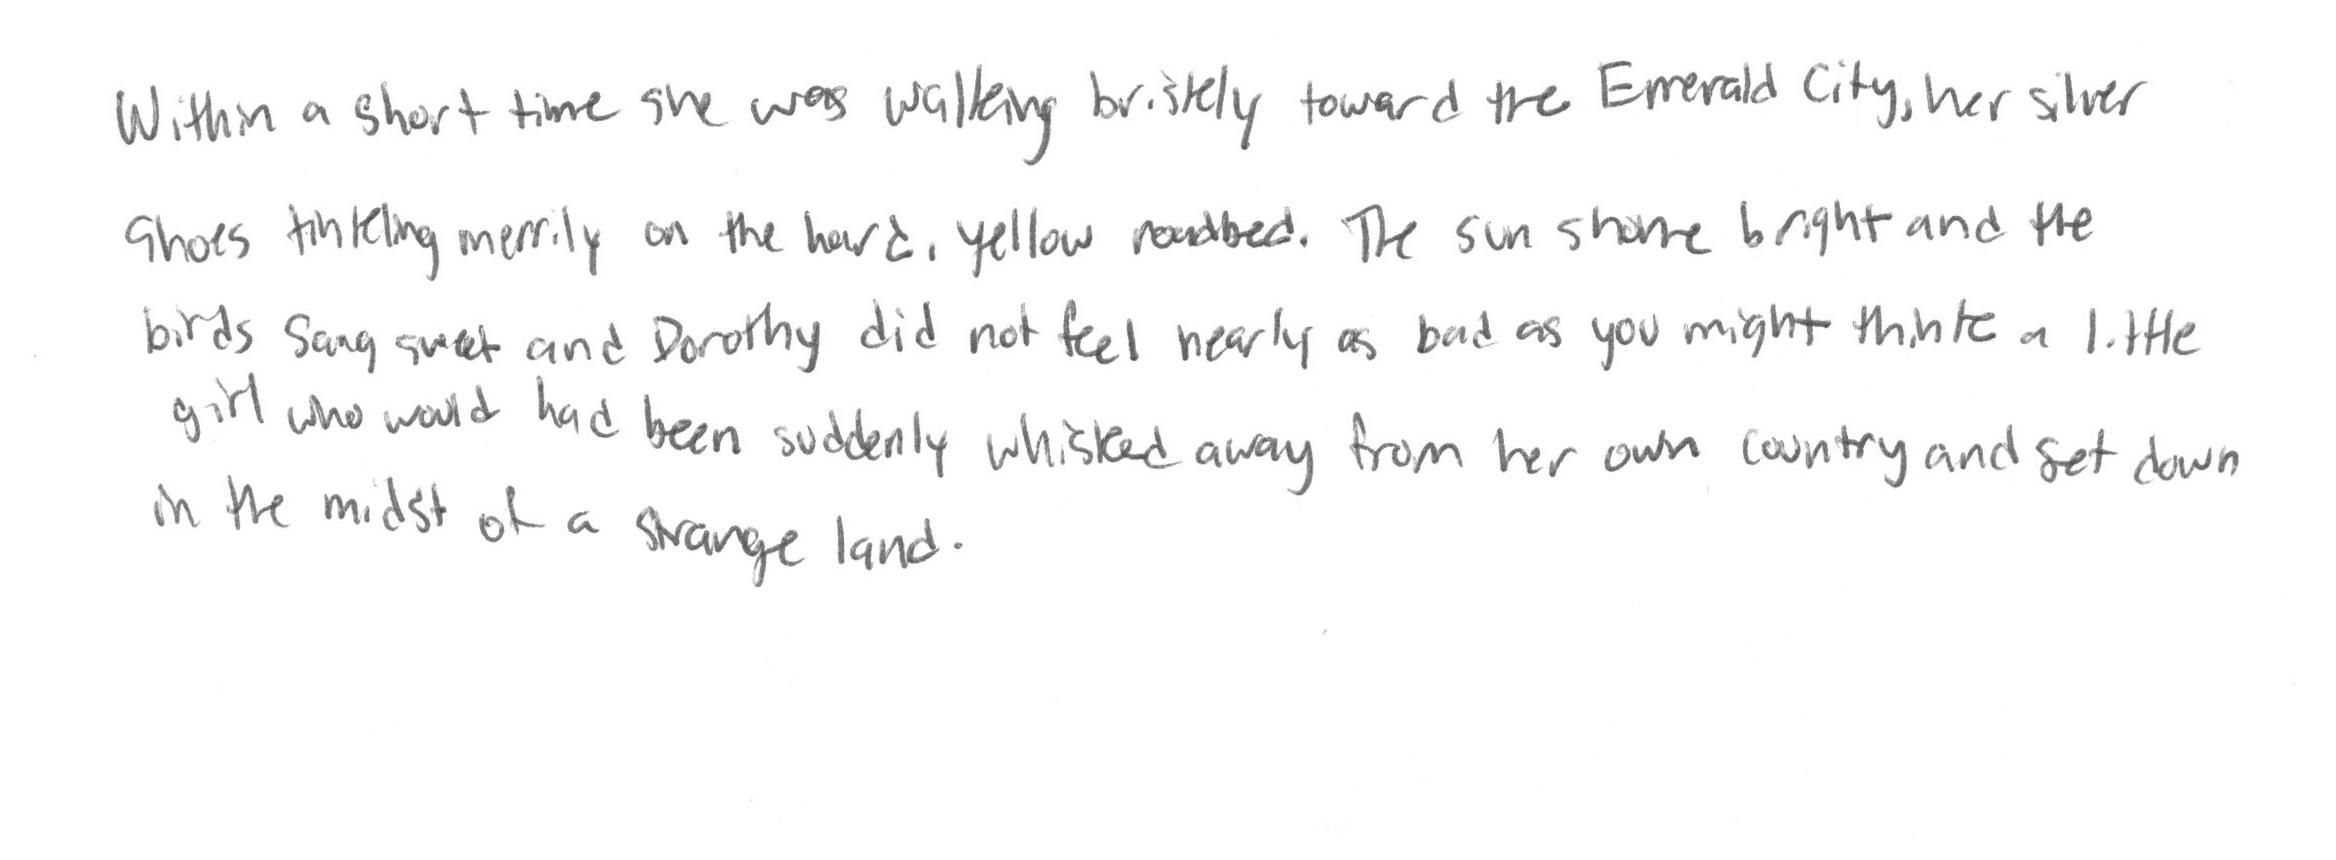 Within a short time she was walking briskly toward the Emerald City, her silver
Shoes tinkling merrily on the hard, yellow roadbed. The sun shone bright and the
birds Sang sweet and Dorothy did not feel nearly as bad as you might think a little
girl who would had been suddenly whisked away from her own country and set down
in the midst of a strange land.